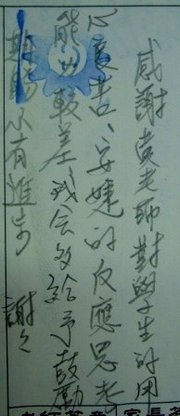 感謝黄老師對學生的用
心良苦、安婕的反應思考
能力較差我会多給予鼓勵
期盼小有進步
謝々